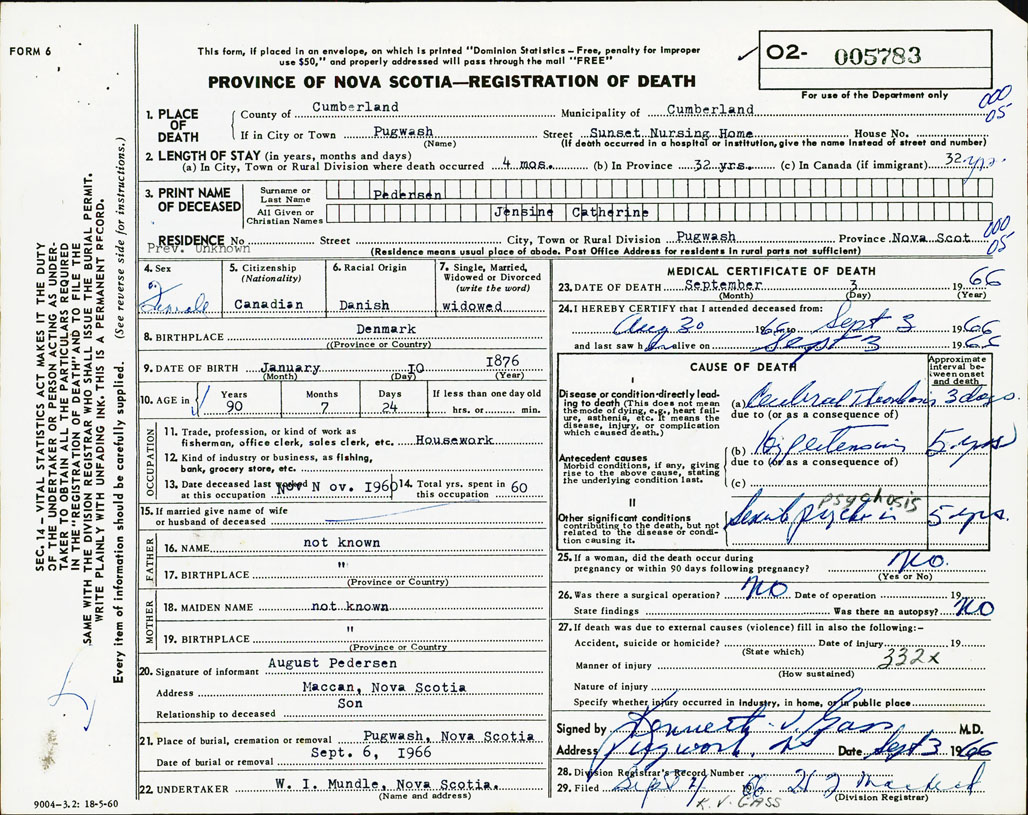 FORM 6
This form, if placed in an envelope, on which is printed "Dominion Statistics – Free, penalty for improper
use $50," and properly addressed will pass through the mail "FREE"
PROVINCE OF NOVA SCOTIA—REGISTRATION OF DEATH
02- 005783
For use of the Department only
000
05
1. PLACE OF DEATH
County of Cumberland Municipality of Cumberland
If in City or Town Pugwash Street Sunset Nursing Home House No.
(Name) (If death occurred in a hospital or institution, give the name instead of street and number)
2. LENGTH OF STAY (in years, months and days)
(a) In City, Town or Rural Division where death occurred 4 mos. (b) In Province 32 yrs. (c) In Canada (if immigrant) 32 yrs.
3. PRINT NAME OF DECEASED
Surname or Last Name Pedersen
All Given or Christian Names Jensine Catherine
000
05
RESIDENCE No Street City, Town or Rural Division Pugwash Province Nova Scot
Prev. Unknown (Residence means usual place of abode. Post Office Address for residents in rural parts not sufficient)
4. Sex Female
5. Citizenship (Nationality) Canadian
6. Racial Origin Danish
7. Single, Married, Widowed or Divorced (write the word) widowed
8. BIRTHPLACE Denmark
((Province or Country)
9. DATE OF BIRTH January IO I876
(Month) (Day) (Year)
10. AGE in Years 90 Months 7 Days 24 If less than one day old hrs. or min.
OCCUPATION
11. Trade, profession, or kind of work as
fisherman, office clerk, sales clerk, etc. Housework
12. Kind of industry or business, as fishing,
bank, grocery store, etc.
13. Date deceased last worked at this occupation Nov N ov. 1960
14. Total yrs. spent in this occupation 60
15. If married give name of wife
or husband of deceased
FATHER
16. NAME not known
17. BIRTHPLACE "
(Province or Country)
MOTHER
18. MAIDEN NAME not known
19. BIRTHPLACE "
(Province or Country)
20. Signature of informant August Pedersen
Address Maccan, Nova Scotia
Relationship to deceased Son
21. Place of burial, cremation or removal Pugwash, Nova Scotia
Date of burial or removal Sept. 6, I966
22. UNDERTAKER W. I. Mundle, Nova Scotia.
(Name and address)
9004–3.2: 18-5-60
MEDICAL CERTIFICATE OF DEATH
23. DATE OF DEATH September 3 1966
(Month) (Day) (Year)
24. I HEREBY CERTIFY that I attended deceased from:
Aug 30 1966 to Sept 3 1966
and last saw h alive on Sept 3 1966
CAUSE OF DEATH
Approximate interval between onset and death
I
Disease or condition directly leading to death (This does not mean the mode of dying, e.g., heart failure, asthenia, etc. It means the disease, injury, or complication which caused death.)
(a) Cerebral Thrombosis 3 days.
due to (or as a consequence of)
Antecedent causes
Morbid conditions, if any, giving rise to the above cause, stating the underlying condition last.
(b) Hypertension 5 yrs
due to (or as a consequence of)
(c)
II
Other significant conditions contributing to the death, but not related to the disease or condition causing it.
psychosis
Senile psychosis 5 yrs.
25. If a woman, did the death occur during
pregnancy or within 90 days following pregnancy? No.
(Yes or No)
26. Was there a surgical operation? NO Date of operation 19
State findings Was there an autopsy? NO
27. If death was due to external causes (violence) fill in also the following:–
Accident, suicide or homicide? Date of injury 19
(State which) 332x
Manner of injury
(How sustained)
Nature of injury
Specify whether injury occurred in industry, in home, or in public place
Signed by Kenneth V Gass M.D.
Address Pugwash, NS Date Sept 3 1966
28. Division Registrar's Record Number
29. Filed Sept 1966
K. V. GASS (Division Registrar)
SEC. 14 – VITAL STATISTICS ACT MAKES IT THE DUTY
OF THE UNDERTAKER OR PERSON ACTING AS UNDER-
TAKER TO OBTAIN ALL THE PARTICULARS REQUIRED
IN THE "REGISTRATION OF DEATH" AND TO FILE THE
SAME WITH THE DIVISION REGISTRAR WHO SHALL ISSUE THE BURIAL PERMIT.
WRITE PLAINLY WITH UNFADING INK. THIS IS A PERMANENT RECORD.
Every item of information should be carefully supplied. (See reverse side for instructions.)